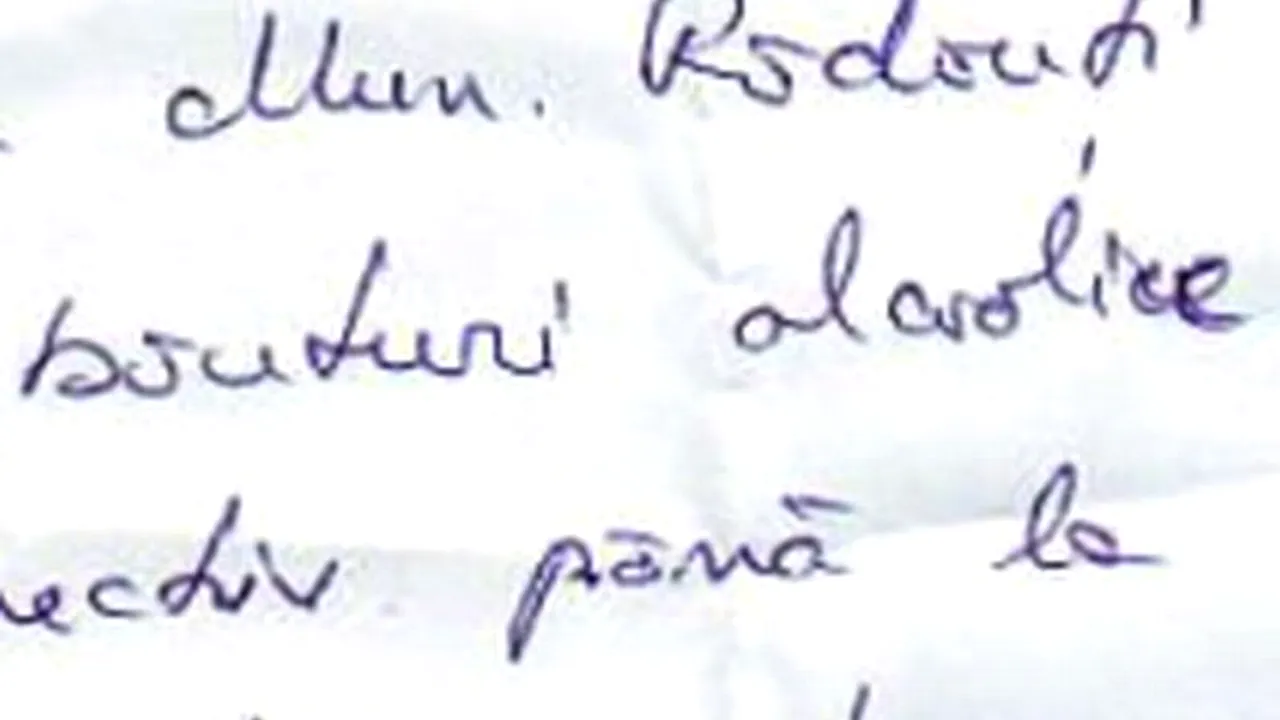 Mun. Rădăuți
băuturi alcoolice
ectiv până la